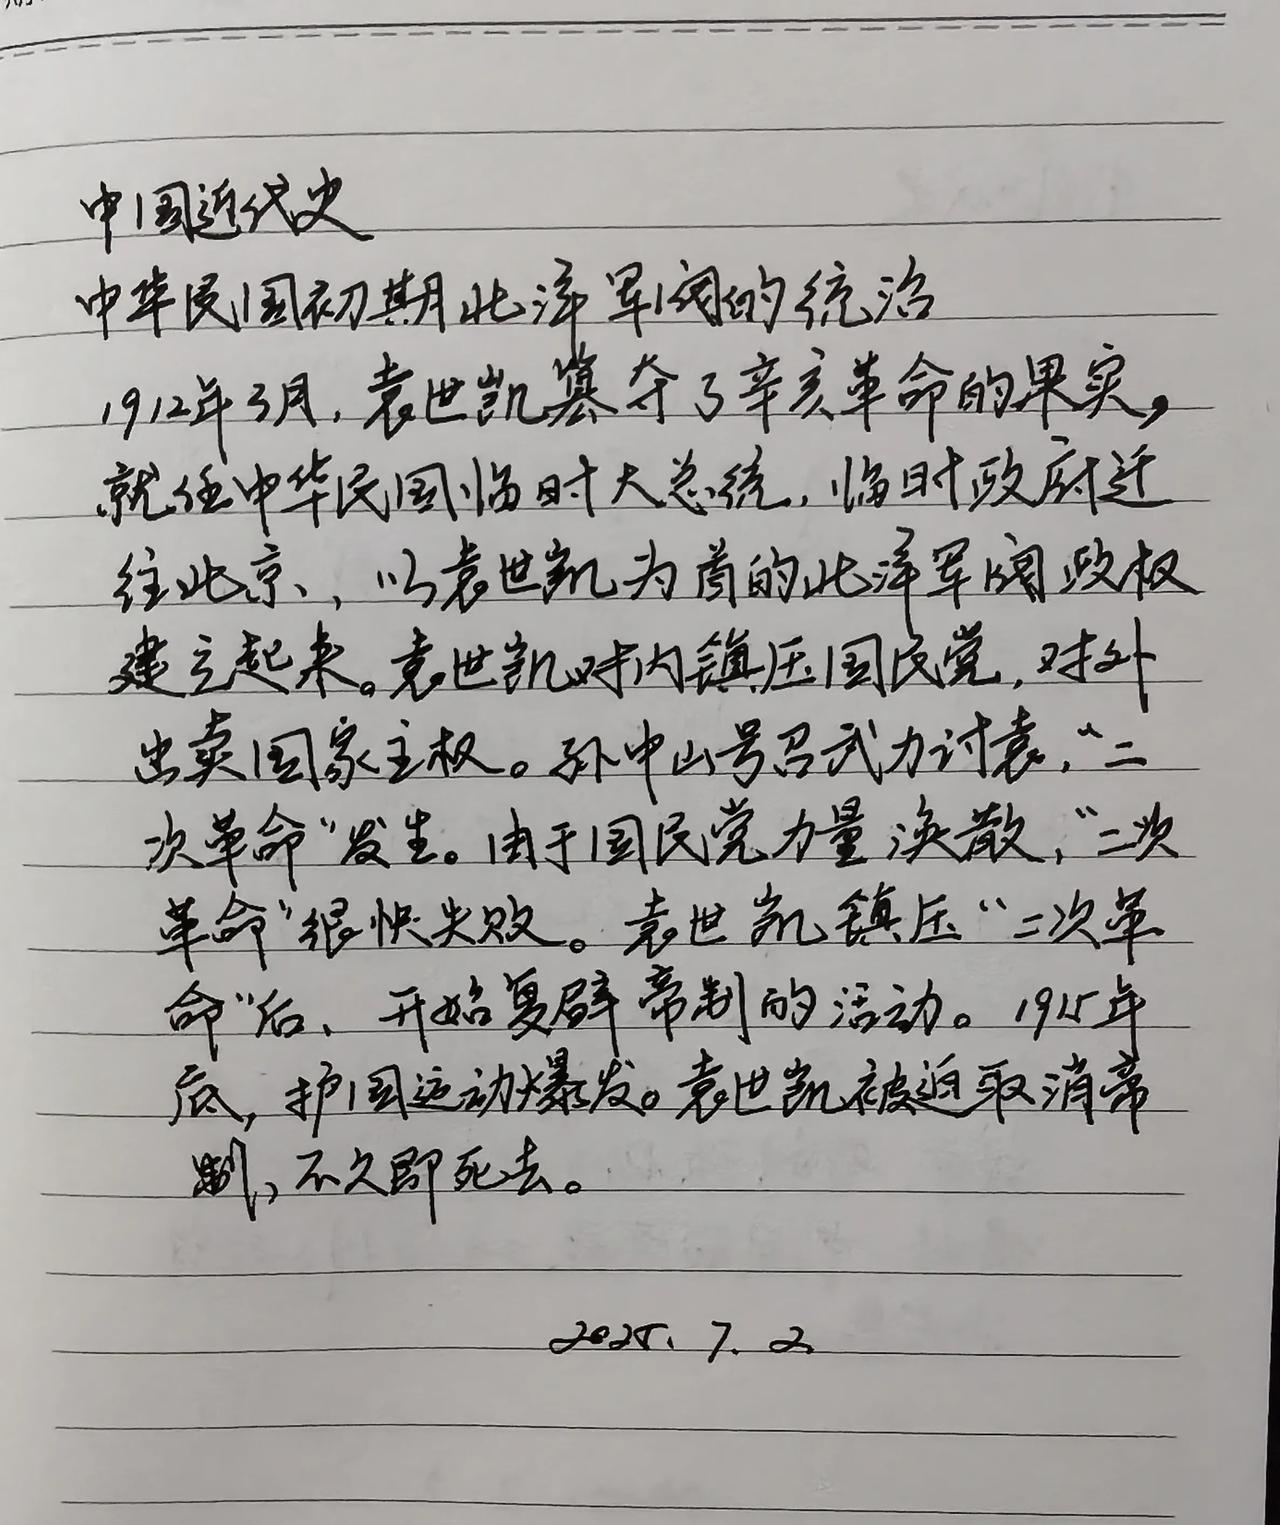 中国近代史
中华民国初期北洋军阀的统治
1912年3月，袁世凯篡夺了辛亥革命的果实，
就任中华民国临时大总统，临时政府迁
往北京、，以袁世凯为首的北洋军阀政权
建立起来。袁世凯对内镇压国民党，对外
出卖国家主权。孙中山号召武力讨袁，“二
次革命”发生。由于国民党力量涣散，“二次
革命”很快失败。袁世凯镇压“二次革
命”后、开始复辟帝制的活动。1915年
底，护国运动爆发。袁世凯被迫取消帝
制，不久即死去。
2025.7.2